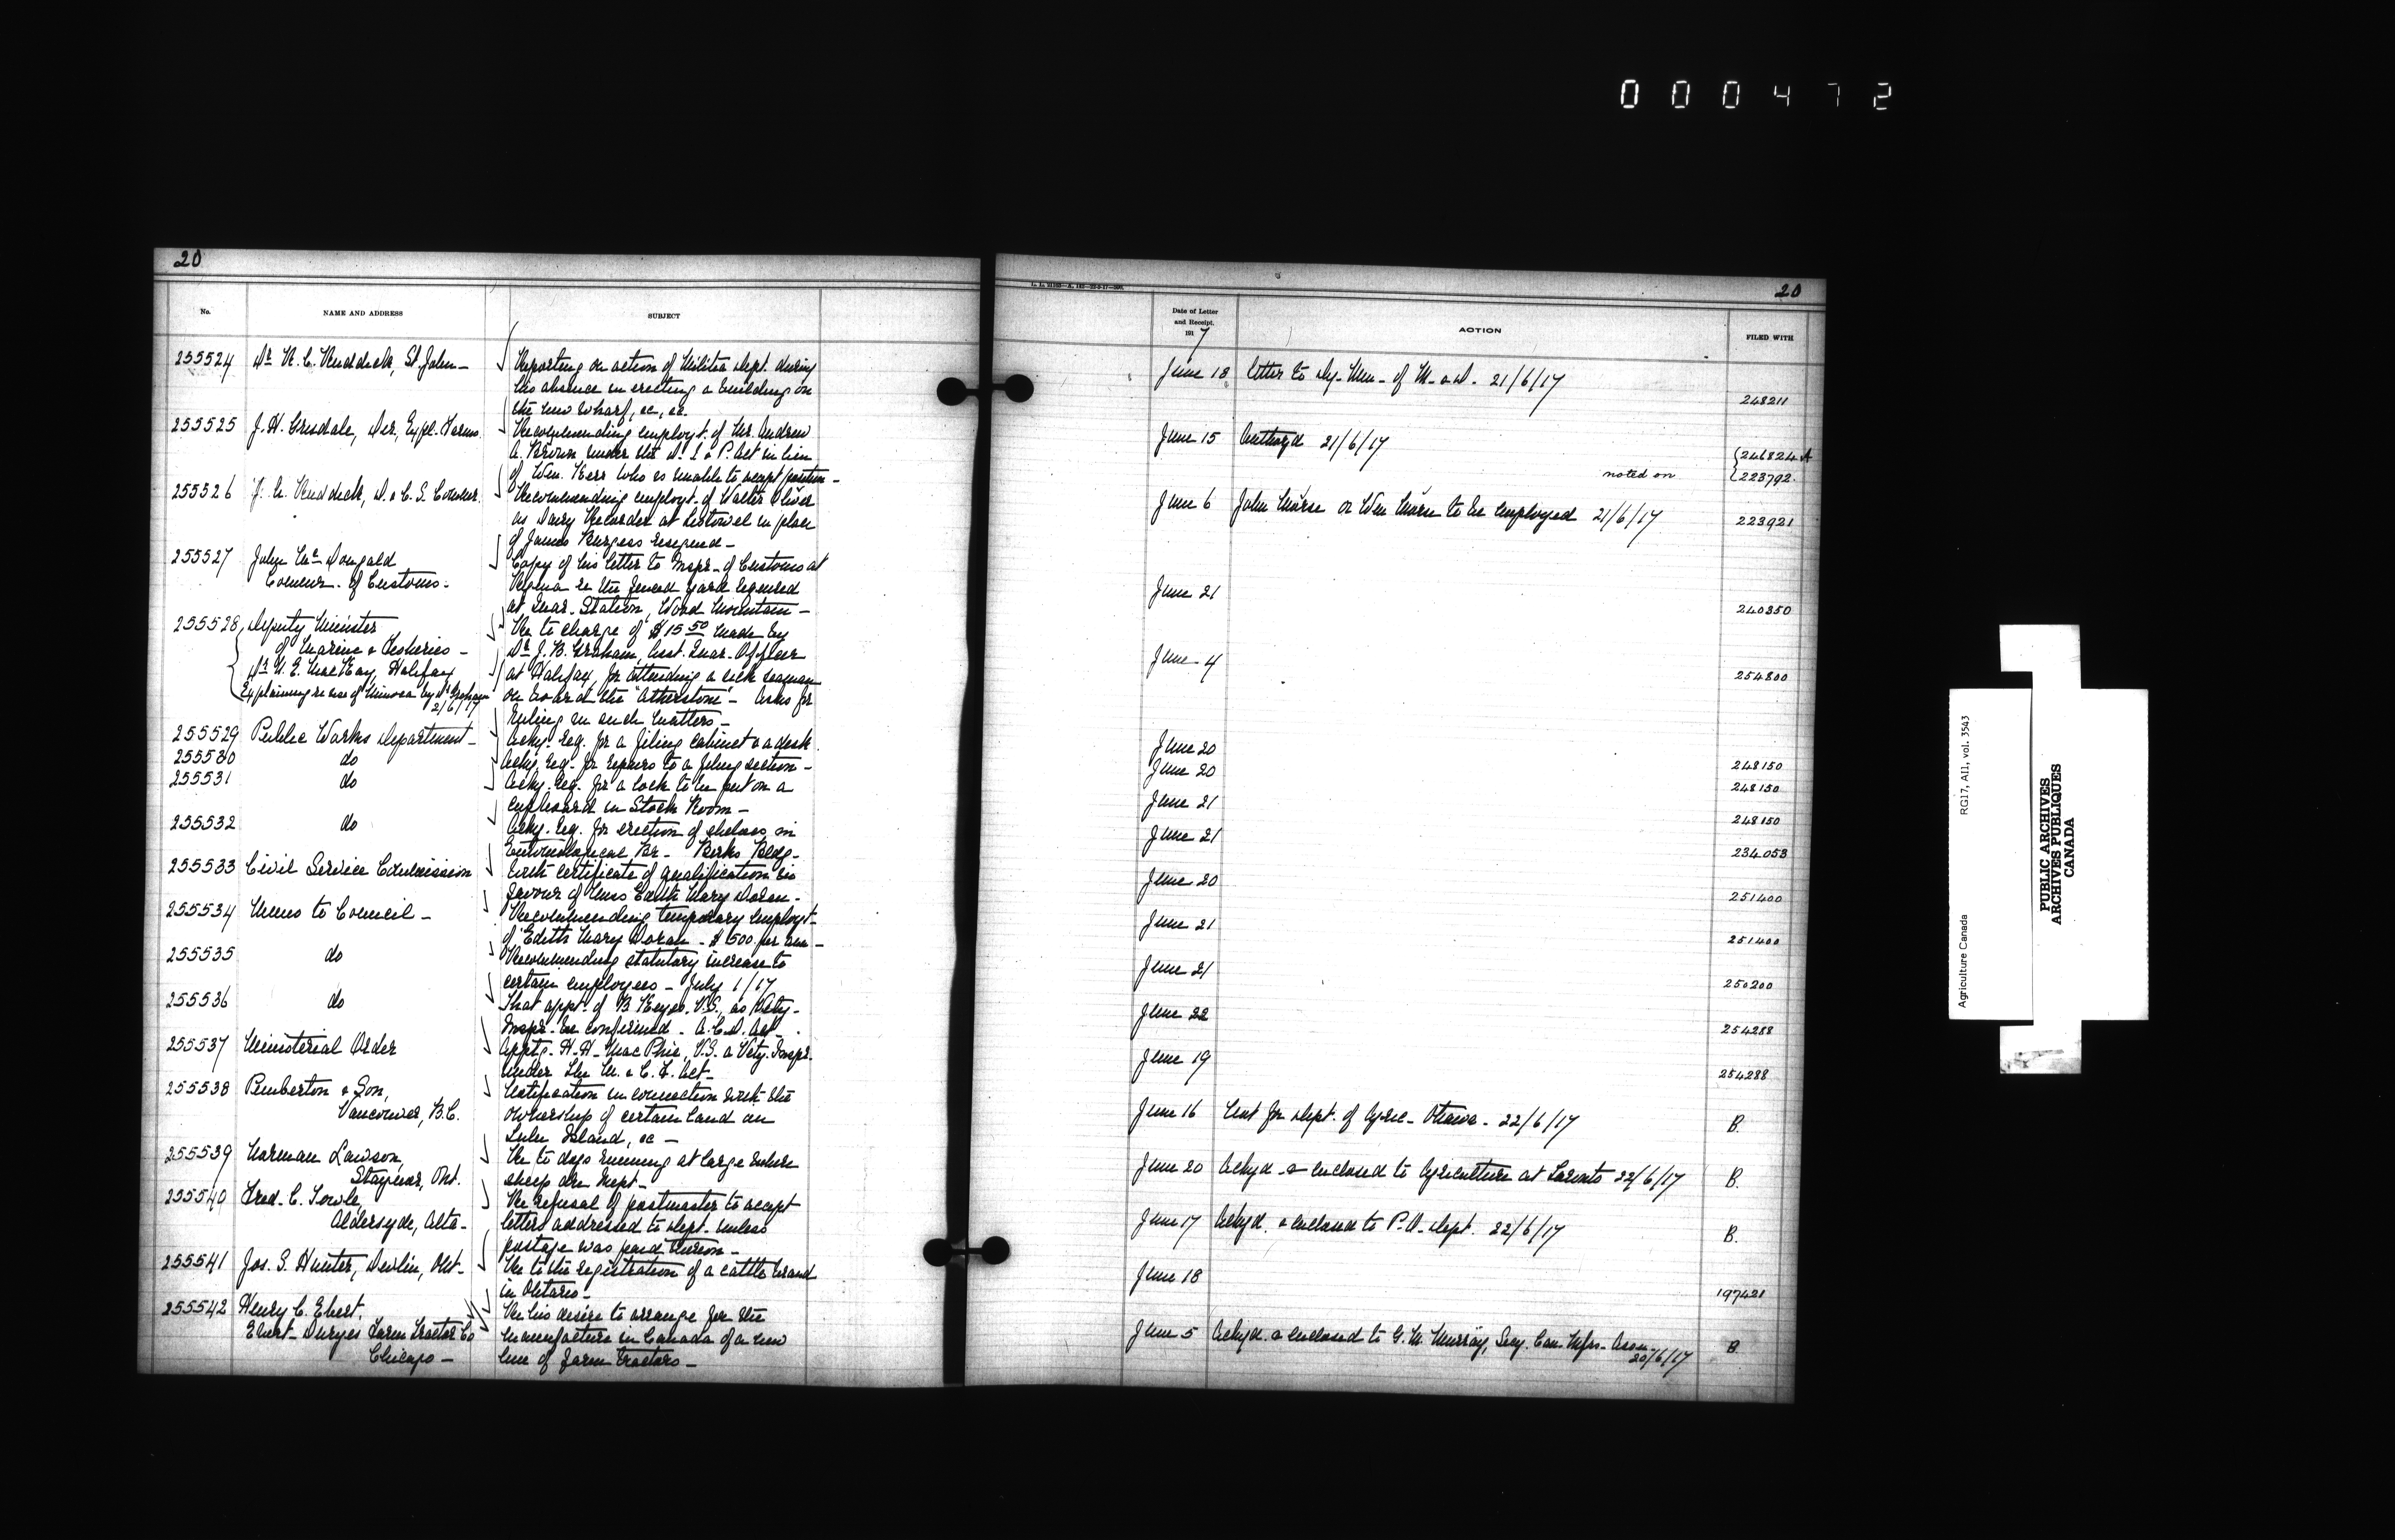 000472
20
No.
NAME AND ADDRESS
SUBJECT
255524 Dr. R. C. Ruddick, St. John - Reporting on action of Militia Dept. during
his absence in erecting a building on
the new wharf, &c, &c.
255525 J. H. Grisdale, Dir. Expl. Farms. Recommending employt. of Mr. Andrew
A. Brown under the D. I & P. Act in lieu
of Wm. Kerr who is unable to accept position -
255526 J. A. Ruddick, D. & C. S. Commr. Recommending employt. of Walter Oliver
as Dairy Recorder at Listowel in place
of James Burgess resigned -
255527 John Mc Dougald Copy of his letter to Inspr. of Customs at
Commr. of Customs. Regina re the fenced yard required
at Quar. Station, Wood Mountain -
255528 Deputy Minister Re to charge of $15 50 made by
of Marine & Fisheries - Dr. J. B. Graham, Asst. Quar. Officer
Dr. N. E. MacKay, Halifax at Halifax, for attending a sick seaman
Explaining re use of Mimosa by Dr. Graham on board the "Atherstone" - Asks for
2/6/17
ruling in such matters -
255529 Public Works Department - Ackg. req. for a filing cabinet & a desk.
255530 do Ackg. req. for repairs to a filing section -
255531 do Ackg. req. for a lock to be put on a
cupboard in Stock Room -
255532 do Ackg. req. for erection of shelves in
Entomological Br. - Birks Bldg -
255533 Civil Service Commission With certificate of qualification in
favour of Miss Edith Mary Doran -
255534 Memo to Council - Recommending temporary employt.
of Edith Mary Doran - $500. per ann -
255535 do Recommending statutory increase to
certain employees - July 1/17
255536 do That appt. of B Keyes, V.S., as Vety.
Inspr. be confirmed - A. C. D. Act -
255537 Ministerial Order Apptg. H. H. MacPhie, V.S. a Vety. Inspr.
under the M. & C. F. Act -
255538 Pemberton & Son, Notification in connection with the
Vancouver, B.C. ownership of certain land on
Lulu Island, &c -
255539 Norman Lawson, Re to dogs running at large where
Stayner, Ont. sheep are kept -
255540 Fred. C. Towle, Re refusal of postmaster to accept
Aldersyde, Alta - letters addressed to Dept. unless
postage was paid thereon -
255541 Jos. S. Hunter, Devlin, Ont - Re to the registration of a cattle brand
in Ontario -
255542 Henry C. Ebert, Re his desire to arrange for the
Ebert-Duryea Farm Tractor Co manufacture in Canada of a new
Chicago - line of farm tractors -
20
Date of Letter
and Receipt.
191 7
ACTION
FILED WITH
June 18 Letter to Dy. Min - of M. & D. 21/6/17
248211
June 15 Authoyd 21/6/17
246824 A
noted on 223792.
June 6 John Morse or Wm Morse to be employed 21/6/17
223921
June 21
240350
June 4
254800
June 20
248150
June 20
248150
June 21
248150
June 21
234053
June 20
251400
June 21
251400
June 21
250200
June 22
254288
June 19
254288
June 16 Sent for Dept. of Agric - Ottawa - 22/6/17 B.
June 20 Ackgd. & enclosed to Agriculture at Toronto 22/6/17 B.
June 17 Ackgd. & enclosed to P.O. Dept. 22/6/17 B.
June 18
197421
June 5 Ackgd. & enclosed to G. M. Murray, Secy. Can. Mfrs. Assn. B.
20/6/17
Agriculture Canada
RG17, AII, vol. 3543
PUBLIC ARCHIVES
ARCHIVES PUBLIQUES
CANADA